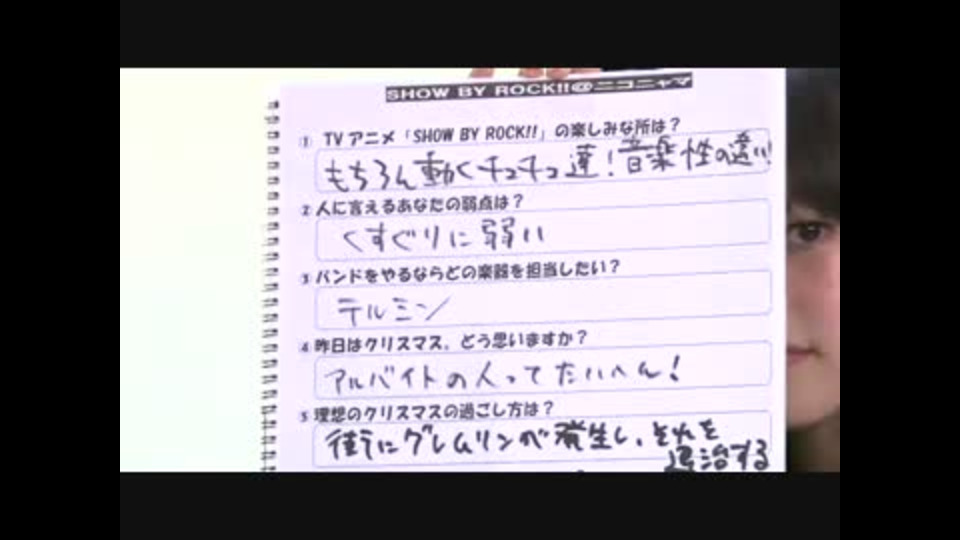 SHOW BY ROCK!!@ニコニャマ
① TVアニメ「SHOW BY ROCK!!」の楽しみな所は？
もちろん動くチュチュ達！音楽性の違い！
② 人に言えるあなたの弱点は？
くすぐりに弱い
③ バンドをやるならどの楽器を担当したい？
テルミン
④ 昨日はクリスマス。どう思いますか？
アルバイトの人ってたいへん！
⑤ 理想のクリスマスの過ごし方は？
街にグレムリンが発生し、それを
退治する